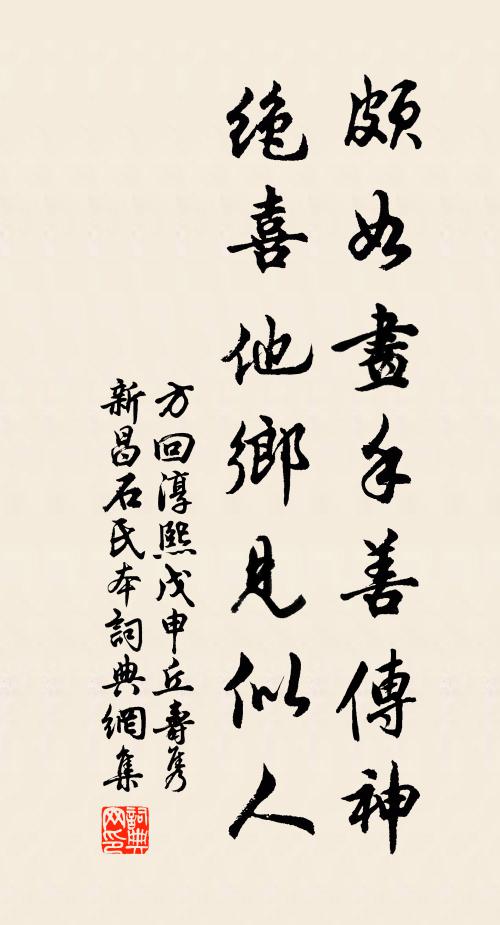 頗如畫手善傳神
绝喜他鄉見似人
方回淳熙戊申丘壽隽
新昌石氏本詞典網集
詞典
网印